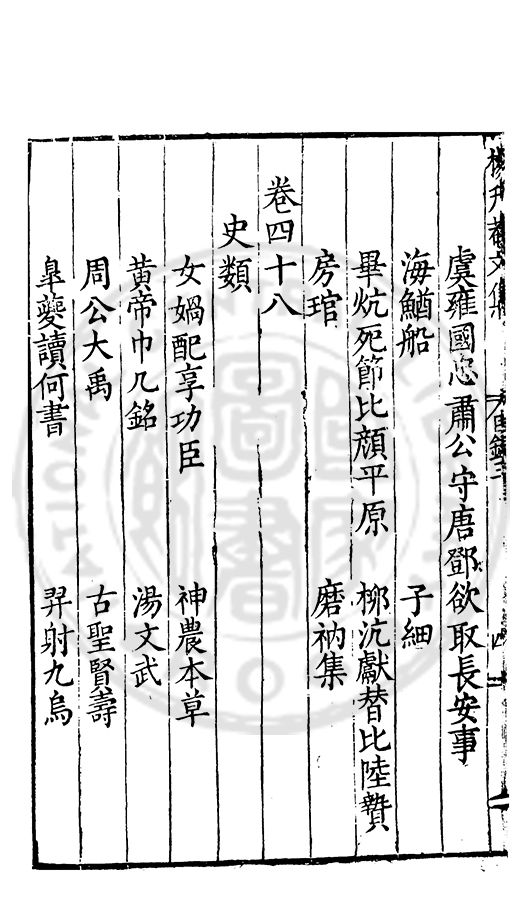 虞雍國忠肅公守唐鄧欲取長安事
海鰌船　子細
畢炕死節比顏平原　柳沆獻替比陸贄
房琯　磨衲集
卷四十八
史類
女媧配享功臣　神農本草
黃帝巾几銘　湯文武
周公大禹　古聖賢壽
皐夔讀何書　羿射九烏